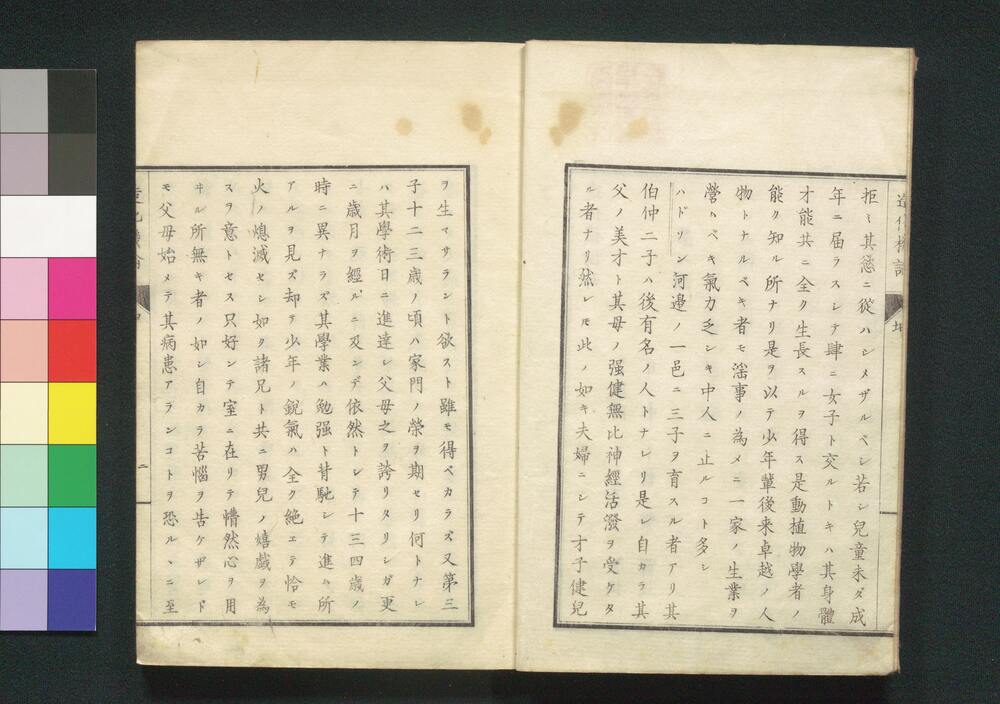 造化機論 乾
拒ミ其慾ニ從ハシメザルベシ若シ兒童未ダ成
年ニ届ラスシテ肆ニ女子ト交ルトキハ其身體
才能共ニ全ク生長スルヲ得ス是動植物學者ノ
能ク知ル所ナリ是ヲ以テ少年輩後来卓越ノ人
物トナルベキ者モ滛事ノ為メニ一家ノ生業ヲ
營ムベキ氣力乏シキ中人ニ止ルコト多シ
ハドソン河邉ノ一邑ニ三子ヲ育スル者アリ其
伯仲二子ハ後有名ノ人トナレリ是レ自カラ其
父ノ美才ト其母ノ强健無比神經活潑ヲ受ケタ
ル者ナリ然レモ此ノ如キ夫婦ニシテ才子健兒
ヲ生マサラント欲スト雖モ得ベカラズ又第三
子十二三歳ノ頃ハ家門ノ榮ヲ期セリ何トナレ
ハ其學術日ニ進達シ父母之ヲ誇リタリシガ更
ニ歳月ヲ經ルニ及ンデ依然トシテ十三四歳ノ
時ニ異ナラズ其學業ハ勉强ト背馳シテ進ム所
アルヲ見ズ却テ少年ノ銳氣ハ全ク絶エテ恰モ
火ノ熄滅セシ如ク諸兄ト共ニ男兒ノ嬉戯ヲ為
スヲ意トセス只好ンテ室ニ在リテ懵然心ヲ用
ヰル所無キ者ノ如シ自カラ苦惱ヲ告ケザレド
モ父母始メテ其病患アランコトヲ恐ル丶ニ至
二